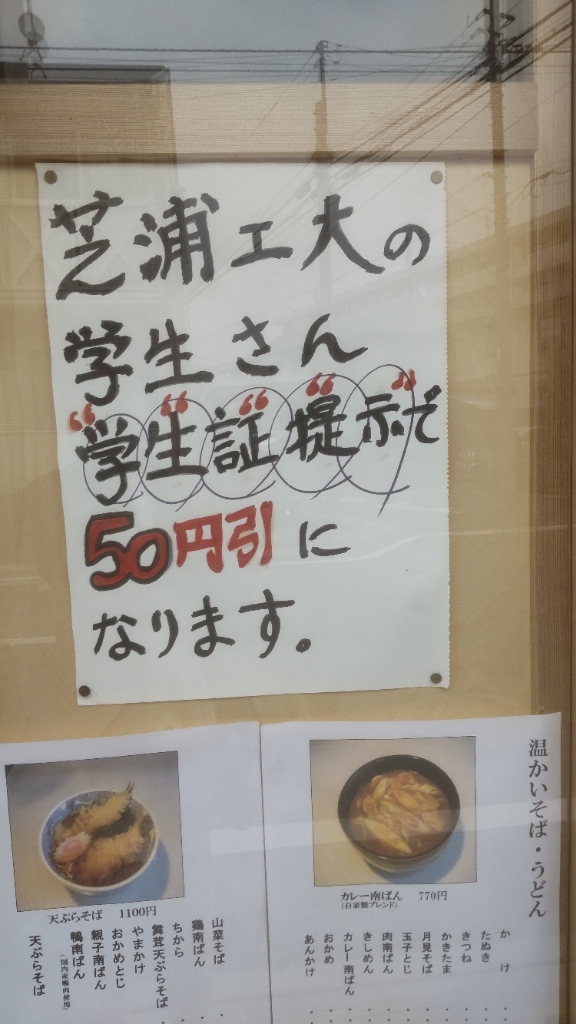 芝浦工大の
学生さん
“学生証提示”で
50円引に
なります。
温かいそば・うどん
カレー南ばん 770円
(自家製ブレンド)
かけ
たぬき
きつね
かきたま
月見そば
玉子とじ
肉南ばん
きしめん
カレー南ばん
おかめ
あんかけ
天ぷらそば 1100円
山菜そば
鶏南ばん
ちから
舞茸天ぷらそば
やまかけ
おかめとじ
親子南ばん
鴨南ばん
(国内産鴨肉使用)
天ぷらそば